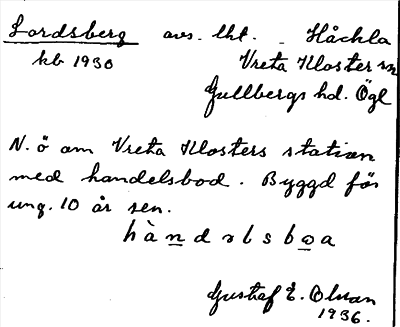 Lordsberg avs. lht. Håckla
kb 1930 Vreta Kloster sn
Gullbergs hd. Ögl
N. ö om Vreta Klosters station
med handelsbod. Byggd för
ung. 10 år sen.
hàndəlsbωa
Gustaf E. Olsson
1936.